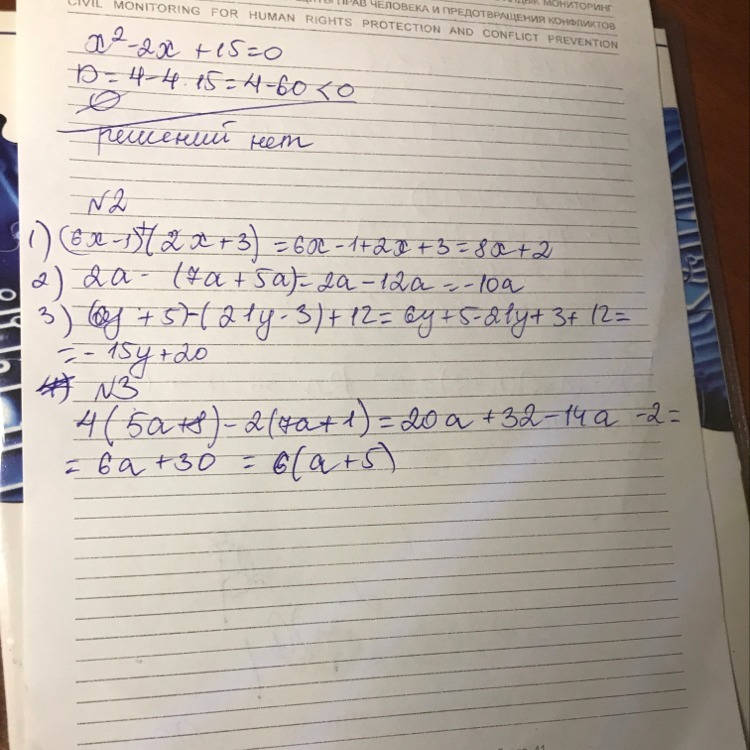 ПРАВ ЧЕЛОВЕКА И ПРЕДОТВРАЩЕНИЯ КОНФЛИКТОВ
МОНИТОРИНГ
CIVIL MONITORING FOR HUMAN RIGHTS PROTECTION AND CONFLICT PREVENTION
x²-2x+15=0
D=4-4·15=4-60<0
∅
решений нет
N2
1) (6x-1)+(2x+3)=6x-1+2x+3=8x+2
2) 2a-(7a+5a)=2a-12a=-10a
3) (6y+5)-(21y-3)+12=6y+5-21y+3+12=
=-15y+20
N3
4(5a+8)-2(7a+1)=20a+32-14a-2=
=6a+30=6(a+5)